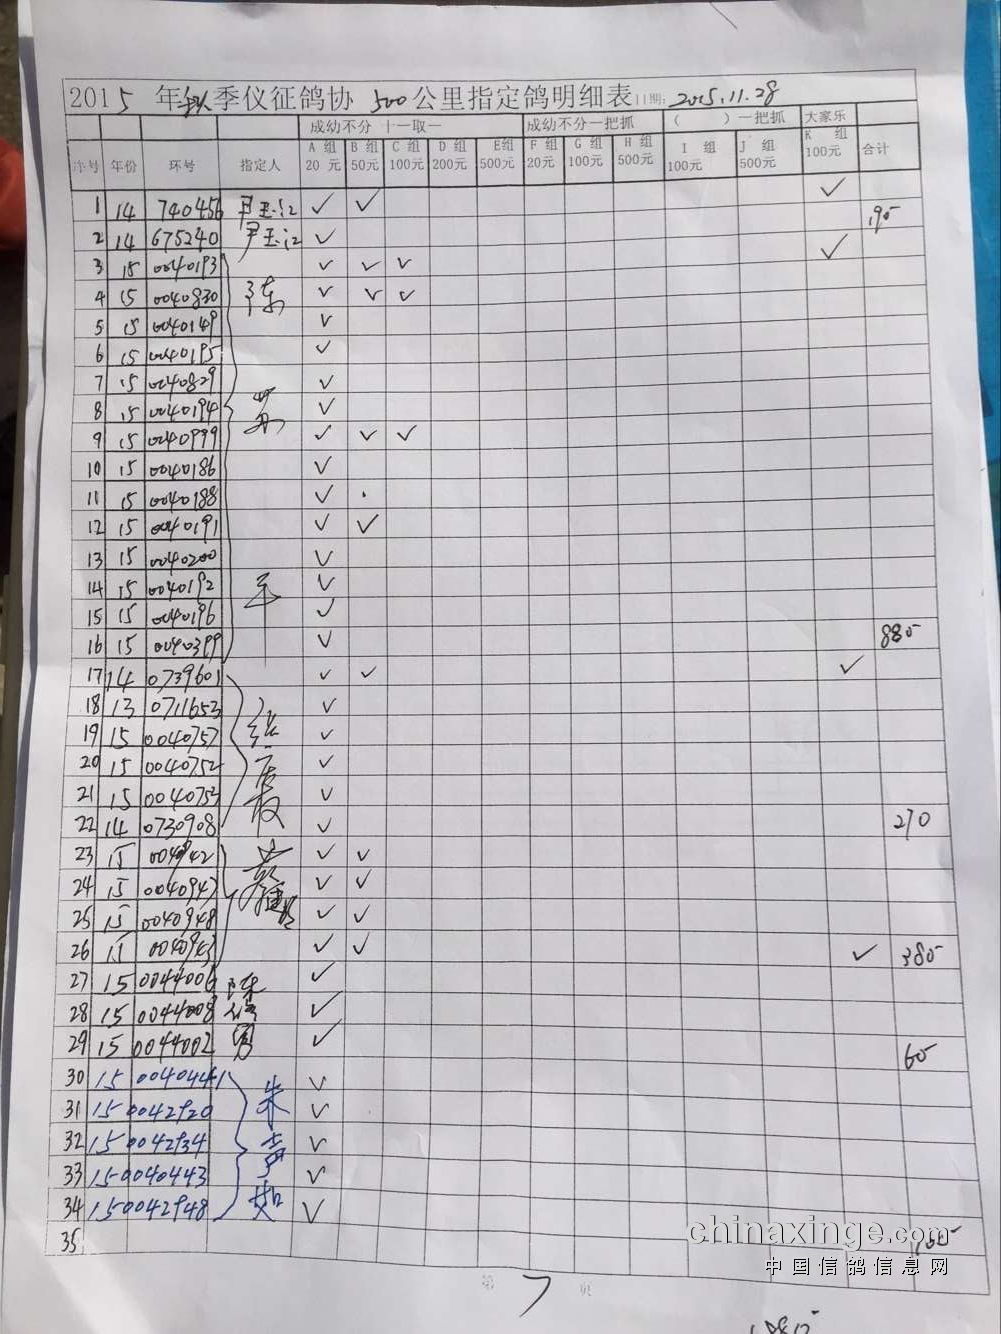 2015 年秋季仪征鸽协 500公里指定鸽明细表 日期: 2015.11.28
成幼不分 十一取一 成幼不分一把抓 ( )一把抓 大家乐
序号 年份 环号 指定人 A 组 20 元 B 组 50元 C 组 100元 D 组 200元 E组 500元 F 组 20元 G 组 100元 H 组 500元 I 组 100元 J 组 500元 K 组 100元 合计
1 14 740456 尹玉江 ✓ ✓ ✓
2 14 675240 尹玉江 ✓ ✓ 190
3 15 0040193 ✓ ✓ ✓
4 15 0040830 陈 ✓ ✓ ✓
5 15 0040149 ✓
6 15 0040195 ✓
7 15 0040829 ✓
8 15 0040194 ✓
9 15 0040999 ✓ ✓ ✓
10 15 0040186 ✓
11 15 0040188 ✓
12 15 0040191 ✓ ✓
13 15 0040200 ✓
14 15 0040192 ✓
15 15 0040196 ✓
16 15 0040399 ✓ 880
17 14 0739601 ✓ ✓ ✓
18 13 0711653 ✓
19 15 0040757 张 ✓
20 15 0040752 ✓
21 15 0040753 ✓
22 14 0730908 ✓ 270
23 15 004942 ✓ ✓
24 15 0040947 ✓ ✓
25 15 0040948 ✓ ✓
26 15 0040943 ✓ ✓ ✓ 380
27 15 0044006 陈 ✓
28 15 0044008 ✓
29 15 0044002 ✓ 60
30 15 0040441 朱 ✓
31 15 0042920 ✓
32 15 0042934 声 ✓
33 15 0040443 ✓
34 15 0042948 ✓
35 100
chinaxinge.com
中国信鸽信息网
第 7 页